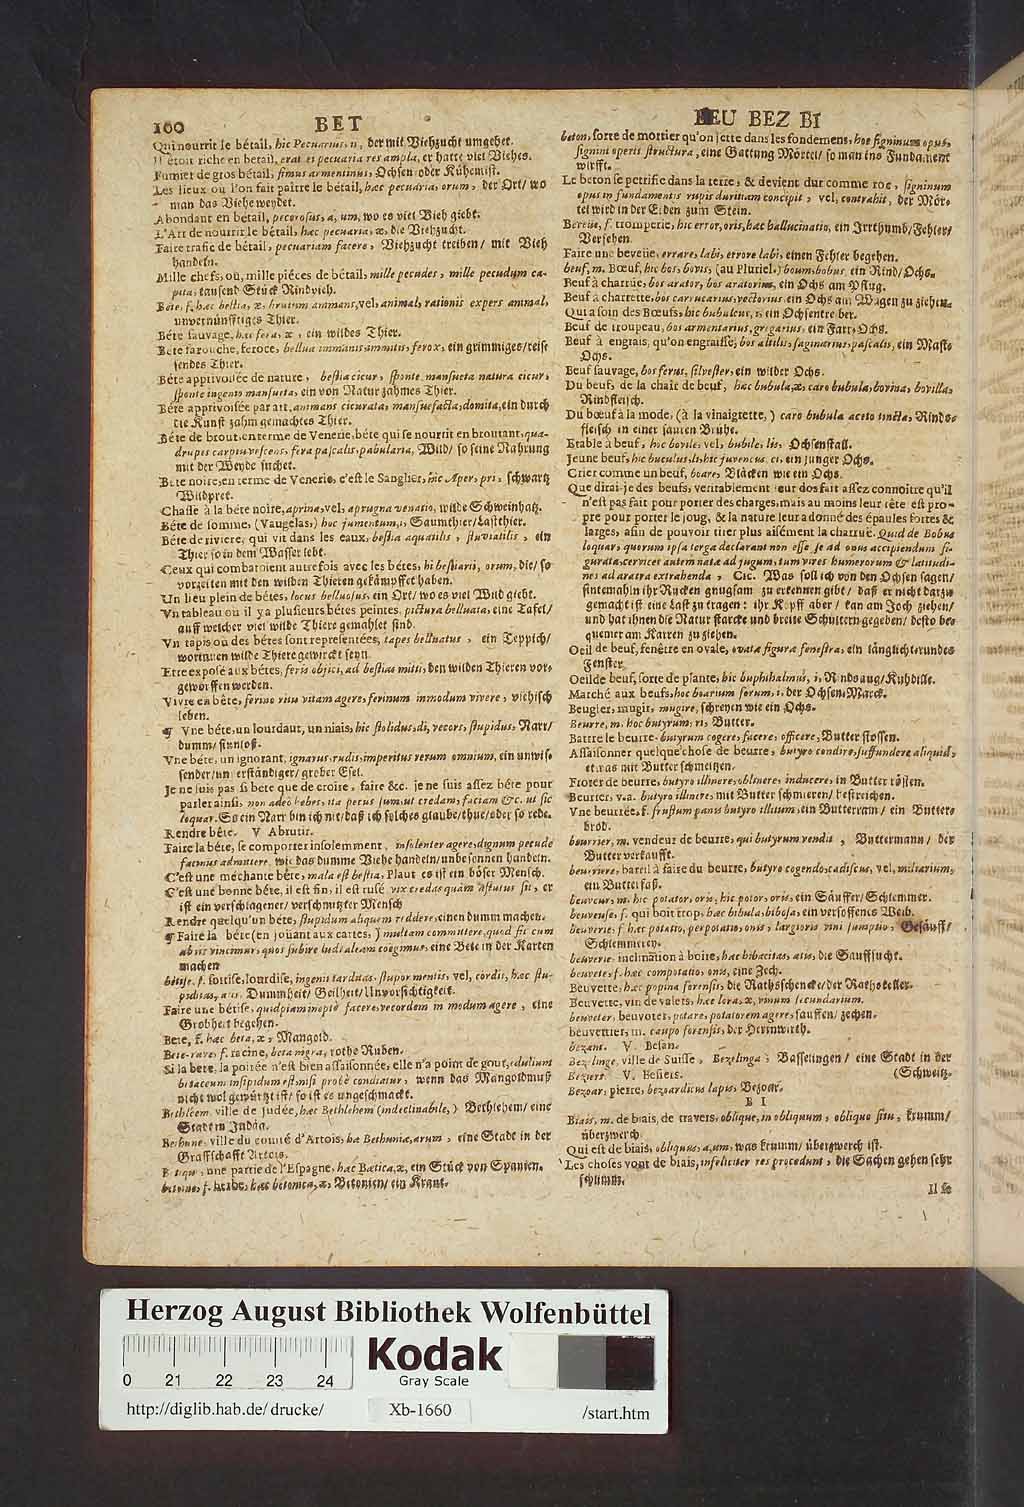 100 BET
Qui nourrit le bétail, hic Pecuarius, ii, der mit Viehzucht umgehet.
Il étoit riche en betail, erat ei pecuaria res ampla, er hatte viel Viehes.
Fumier de gros bétail, fimus armentinus, Ochsen oder Kühemist.
Les lieux où l'on fait paître le bétail, hæc pecuaria, orum, der Ort/ wo
man das Viehe weydet.
Abondant en bétail, pecorosus, a, um, wo es viel Vieh giebt.
L'Art de nourrir le bétail, hæc pecuaria, æ, die Viehzucht.
Faire trafic de bétail, pecuariam facere, Viehzucht treiben/ mit Vieh
handeln.
Mille chefs, ou, mille piéces de bétail, mille pecudes, mille pecudum ca-
pita, tausend Stück Rindvieh.
Bête, f. hæc bestia, æ, brutum animans, vel, animal, rationis expers animal,
unvernünfftiges Thier.
Bête sauvage, hæc fera, æ, ein wildes Thier.
Bête farouche, feroce, bellua immanis, immitis, ferox, ein grimmiges/ reis-
sendes Thier.
Béte apprivoisée de nature, bestia cicur, sponte mansueta natura cicur,
sponte ingenio mansueta, ein von Natur zahmes Thier.
Béte apprivoisée par art, animans cicurata, mansuefacta, domita, ein durch
die Kunst zahm gemachtes Thier.
Béte de brout, en terme de Venerie, béte qui se nourrit en broutant, qua-
drupes carptu vescens, fera pascalis, pabularia, Wild/ so seine Nahrung
mit der Weyde suchet.
Bête noire, en terme de Venerie, c'est le Sanglier, hic Aper, pri, schwartz
Wildpret.
Chasse à la béte noire, aprina, vel, aprugna venatio, wilde Schweinhatz.
Béte de somme, (Vaugelas,) hoc jumentum, i, Saumthier/ Lastthier.
Béte de riviere, qui vit dans les eaux, bestia aquatilis, fluviatilis, ein
Thier so in dem Wasser lebt.
Ceux qui combatoient autrefois avec les bêtes, hi bestiarii, orum, die/ so
vorzeiten mit den wilden Thieren gekämpffet haben.
Un lieu plein de bétes, locus belluosus, ein Ort/ wo es viel Wild giebt.
Vn tableau où il y a plusieurs bétes peintes, pictura belluata, eine Tafel/
auff welcher viel wilde Thiere gemahlet sind.
Vn tapis où des bétes sont representées, tapes belluatus, ein Teppich/
worinnen wilde Thiere gewirckt seyn.
Etre exposé aux bétes, feris objici, ad bestias mitti, den wilden Thieren vor-
geworffen werden.
Vivre en béte, ferino ritu vitam agere, ferinum in modum vivere, viehisch
leben.
¶ Vne béte, un lourdaut, un niais, hic stolidus, di, vecors, stupidus, Narr/
dumm/ sinnloß.
Vne béte, un ignorant, ignarus, rudis, imperitus rerum omnium, ein unwis-
sender/ unverständiger/ grober Esel.
Je ne suis pas si bete que de croire, faire &c. je ne suis assez béte pour
parler ainsi, non adeo hebes, ita pecus sum, ut credam, faciam &c. ut sic
loquar, So ein Narr bin ich nit/ daß ich solches glaube/ thue/ oder so rede.
Rendre béte. V Abrutir.
Faire la béte, se comporter insolemment, insolenter agere, dignum pecude
facinus admittere, wie das dumme Viehe handeln/ unbesonnen handeln.
C'est une méchante béte, mala est bestia, Plaut. es ist ein böser Mensch.
C'est une bonne béte, il est fin, il est rusé, vix credas quàm astutus sit, er
ist ein verschlagener/ verschmitzter Mensch
Rendre quelqu'un béte, stupidum aliquem reddere, einen dumm machen.
¶ Faire la béte (en joüant aux cartes,) multam committere, quod sic cum
ab iis vincimur, quos subire ludi aleam coëgimus, eine Bete in der Karten
machen
bétise, f. sottise, lourdise, ingenii tarditas, stupor mentis, vel, cordis, hæc stu-
piditas, atis. Dummheit/ Geilheit/ Unvorsichtigkeit.
Faire une bétise, quidpiam ineptè facere, vecordem in modum agere, eine
Grobheit begehen.
Bete, f. hæc beta, æ, Mangold.
Bete-rave, f. racine, beta nigra, rothe Ruben.
Si la bete, la poirée n'est bien assaisonnée, elle n'a point de gout, edulium
betaceum insipidum est, nisi probè condiatur, wenn das Mangoldmuß
nicht wol gewürtzt ist/ so ist es ungeschmackt.
Bethléem, ville de Judée, hæc Bethlehem (indeclinabile,) Bethlehem/ eine
Stadt in Judäa.
Bethune, ville du comté d'Artois, hæ Bethuniæ, arum, eine Stadt in der
Graffschafft Artois.
Betique, une partie de l'Espagne, hæc Bætica, æ, ein Stück von Spanien.
betoine, f. herbe, hæc betonica, æ, Betonien/ ein Kraut.
BEU BEZ BI
beton, sorte de mortier qu'on jette dans les fondemens, hoc signinum opus,
signini operis structura, eine Gattung Mörtel/ so man ins Fundament
wirfft.
Le beton se petrifie dans la terre, & devient dur comme roc, signinum
opus in fundamentis rupis duritiam concipit, vel, contrahit, der Mör-
tel wird in der Erden zum Stein.
Beveue, f. tromperie, hic error, oris, hæc hallucinatio, ein Irrthumb/ Fehler/
Versehen.
Faire une beveüe, errare, labi, errore labi, einen Fehler begehen.
beuf, m. Bœuf, hic bos, bovis, (au Pluriel,) boum, bobus, ein Rind/ Ochs.
Beuf à charrüe, bos arator, bos aratorius, ein Ochs am Pflug.
Beuf à charrette, bos carrucarius, vectorius, ein Ochs am Wagen zu ziehen.
Qui a soin des Bœufs, hic bubulcus, i, ein Ochsentreiber.
Beuf de troupeau, bos armentarius, gregarius, ein Farr/ Ochs.
Beuf à engrais, qu'on engraisse, bos altilis, saginarius, pascalis, ein Mast-
Ochs.
Beuf sauvage, bos ferus, silvester, ein wilder Ochs.
Du beuf, de la chair de beuf, hæc bubula, æ, caro bubula, bovina, bovilla,
Rindfleisch.
Du bœuf à la mode, (à la vinaigrette,) caro bubula aceto tincta, Rind-
fleisch in einer sauren Brühe.
Etable à beuf, hoc bovile, vel, bubile, lis, Ochsenstall.
Jeune beuf, hic buculus, li, hic juvencus, ci, ein junger Ochs.
Crier comme un beuf, boare, Blöcken wie ein Ochs.
Que dirai-je des beufs, veritablement leur dos fait assez connoître qu'il
n'est pas fait pour porter des charges, mais au moins leur tête est pro-
pre pour porter le joug, & la nature leur a donné des épaules fortes &
larges, afin de pouvoir tirer plus aisément la charruë. Quid de Bobus
loquar, quorum ipsa terga declarant non esse se ad onus accipiendum fi-
gurata, cervices autem natæ ad jugum, tum vires humerorum & latitudi-
nes ad aratra extrahenda, Cic. Was soll ich von den Ochsen sagen/
sintemahln ihr Rucken gnugsam zu erkennen gibt/ daß er nicht darzu
gemacht ist eine Last zu tragen: ihr Kopff aber/ kan am Joch ziehen/
und hat ihnen die Natur starcke und breite Schultern gegeben/ desto be-
quemer am Karren zu ziehen.
Oeil de beuf, fenêtre en ovale, ovatæ figuræ fenestra, ein länglicht rundes
Fenster.
Oeil de beuf, sorte de plante, hic buphthalmus, i, Rindsaug/ Kühdille.
Marché aux beufs, hoc boarium forum, i, der Ochsen-Marck.
Beugler, mugir, mugire, schreyen wie ein Ochs.
Beurre, m. hoc butyrum, ri, Butter.
Battre le beurre, butyrum cogere, facere, efficere, Butter stossen.
Assaisonner quelque chose de beurre, butyro condire, suffundere aliquid,
etwas mit Butter schmeltzen.
Froter de beurre, butyro illinere, oblinere, inducere, in Butter rösten.
Beurrer, v.a. butyro illinere, mit Butter schmieren/ bestreichen.
Vne beurrée, f. frustum panis butyro illitum, ein Butterram/ ein Butter-
brod.
beurrier, m. vendeur de beurre, qui butyrum vendit, Buttermann/ der
Butter verkaufft.
beurriere, baril à faire du beurre, butyro cogendo cadiscus, vel, miliarium,
ein Butterfaß.
beuveur, m. hic potator, oris, hic potor, oris, ein Säuffer/ Schlemmer.
beuveuse, f. qui boit trop, hæc bibula, bibosa, ein versoffenes Weib.
beuverie, f. hæc potatio, perpotatio, onis, largioris vini sumptio, Gesäuff/
Schlemmerey.
beuverie, inclination à boire, hæc bibacitas, atis, die Sauffsucht.
beuvete, f. hæc compotatio, onis, eine Zech.
Beuvette, hæc popina forensis, die Rathsschencke/ der Rathskeller.
Beuvette, vin de valets, hæc lora, æ, vinum secundarium.
beuveter, beuvoter, potare, potatorem agere, sauffen/ zechen.
beuvettier, m. caupo forensis, der Herrnwirth.
bezant. V. Besan.
Bezlinge, ville de Suisse, Bezelinga; Basselingen/ eine Stadt in der
Beziers. V. Besiers. (Schweitz.
Bezoar, pierre, bezoardicus lapis, Bezoar.
B I
Biais, m. de biais, de travers, oblique, in obliquum, obliquo situ, krumm/
überzwerch.
Qui est de biais, obliquus, a, um, was krumm/ überzwerch ist.
Les choses vont de biais, infeliciter res procedunt, die Sachen gehen sehr
schlimm.
Herzog August Bibliothek Wolfenbüttel
Kodak
Gray Scale
0 21 22 23 24
http://diglib.hab.de/drucke/ Xb-1660 /start.htm